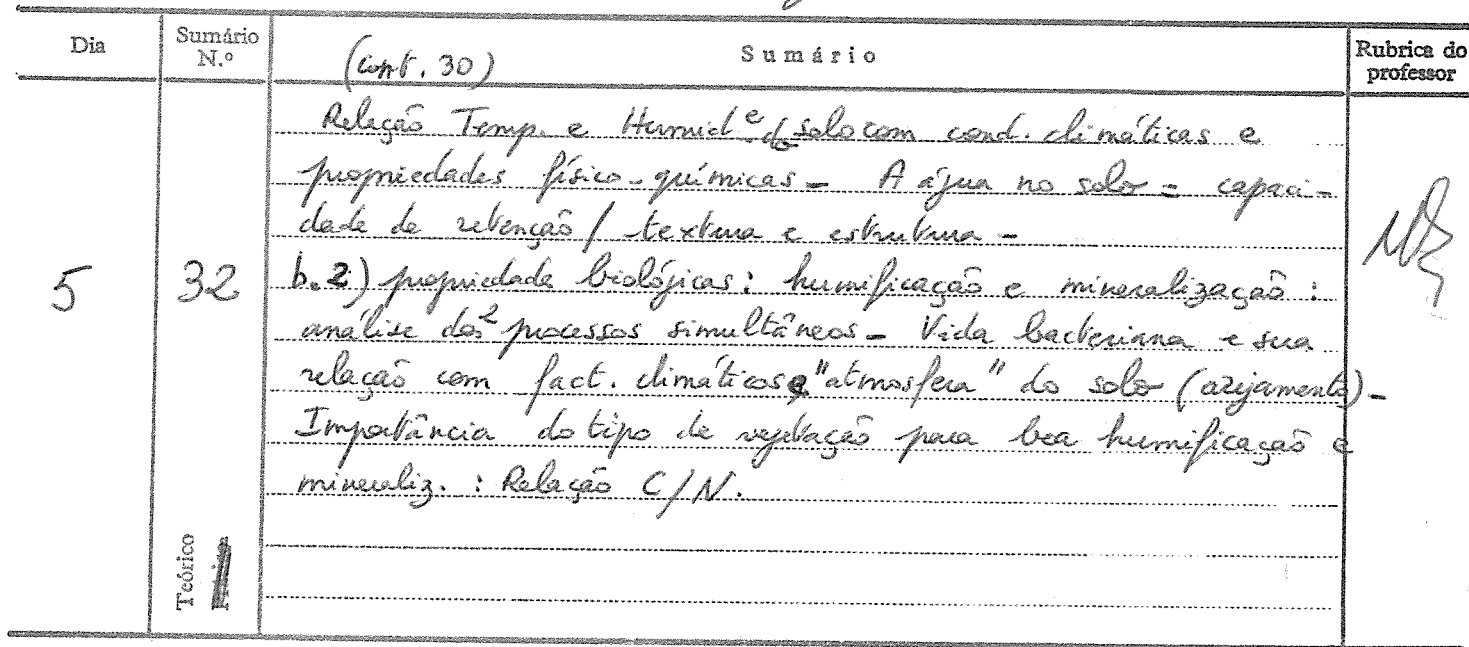 Dia Sumário N.º Sumário Rubrica do professor
(cont. 30)
Relação Temp. e Humid.e do solo com cond. climáticas e
propriedades físico-químicas - A água no solo = capaci-
dade de retenção / textura e estrutura -
5 32 b.2) propriedade biológicas: humificação e mineralização :
análise dos 2 processos simultâneos - Vida bacteriana e sua
relação com fact. climáticos e "atmosfera" do solo (arejamento) -
Importância do tipo de vegetação para boa humificação e
mineraliz. : Relação C/N.
Teórico